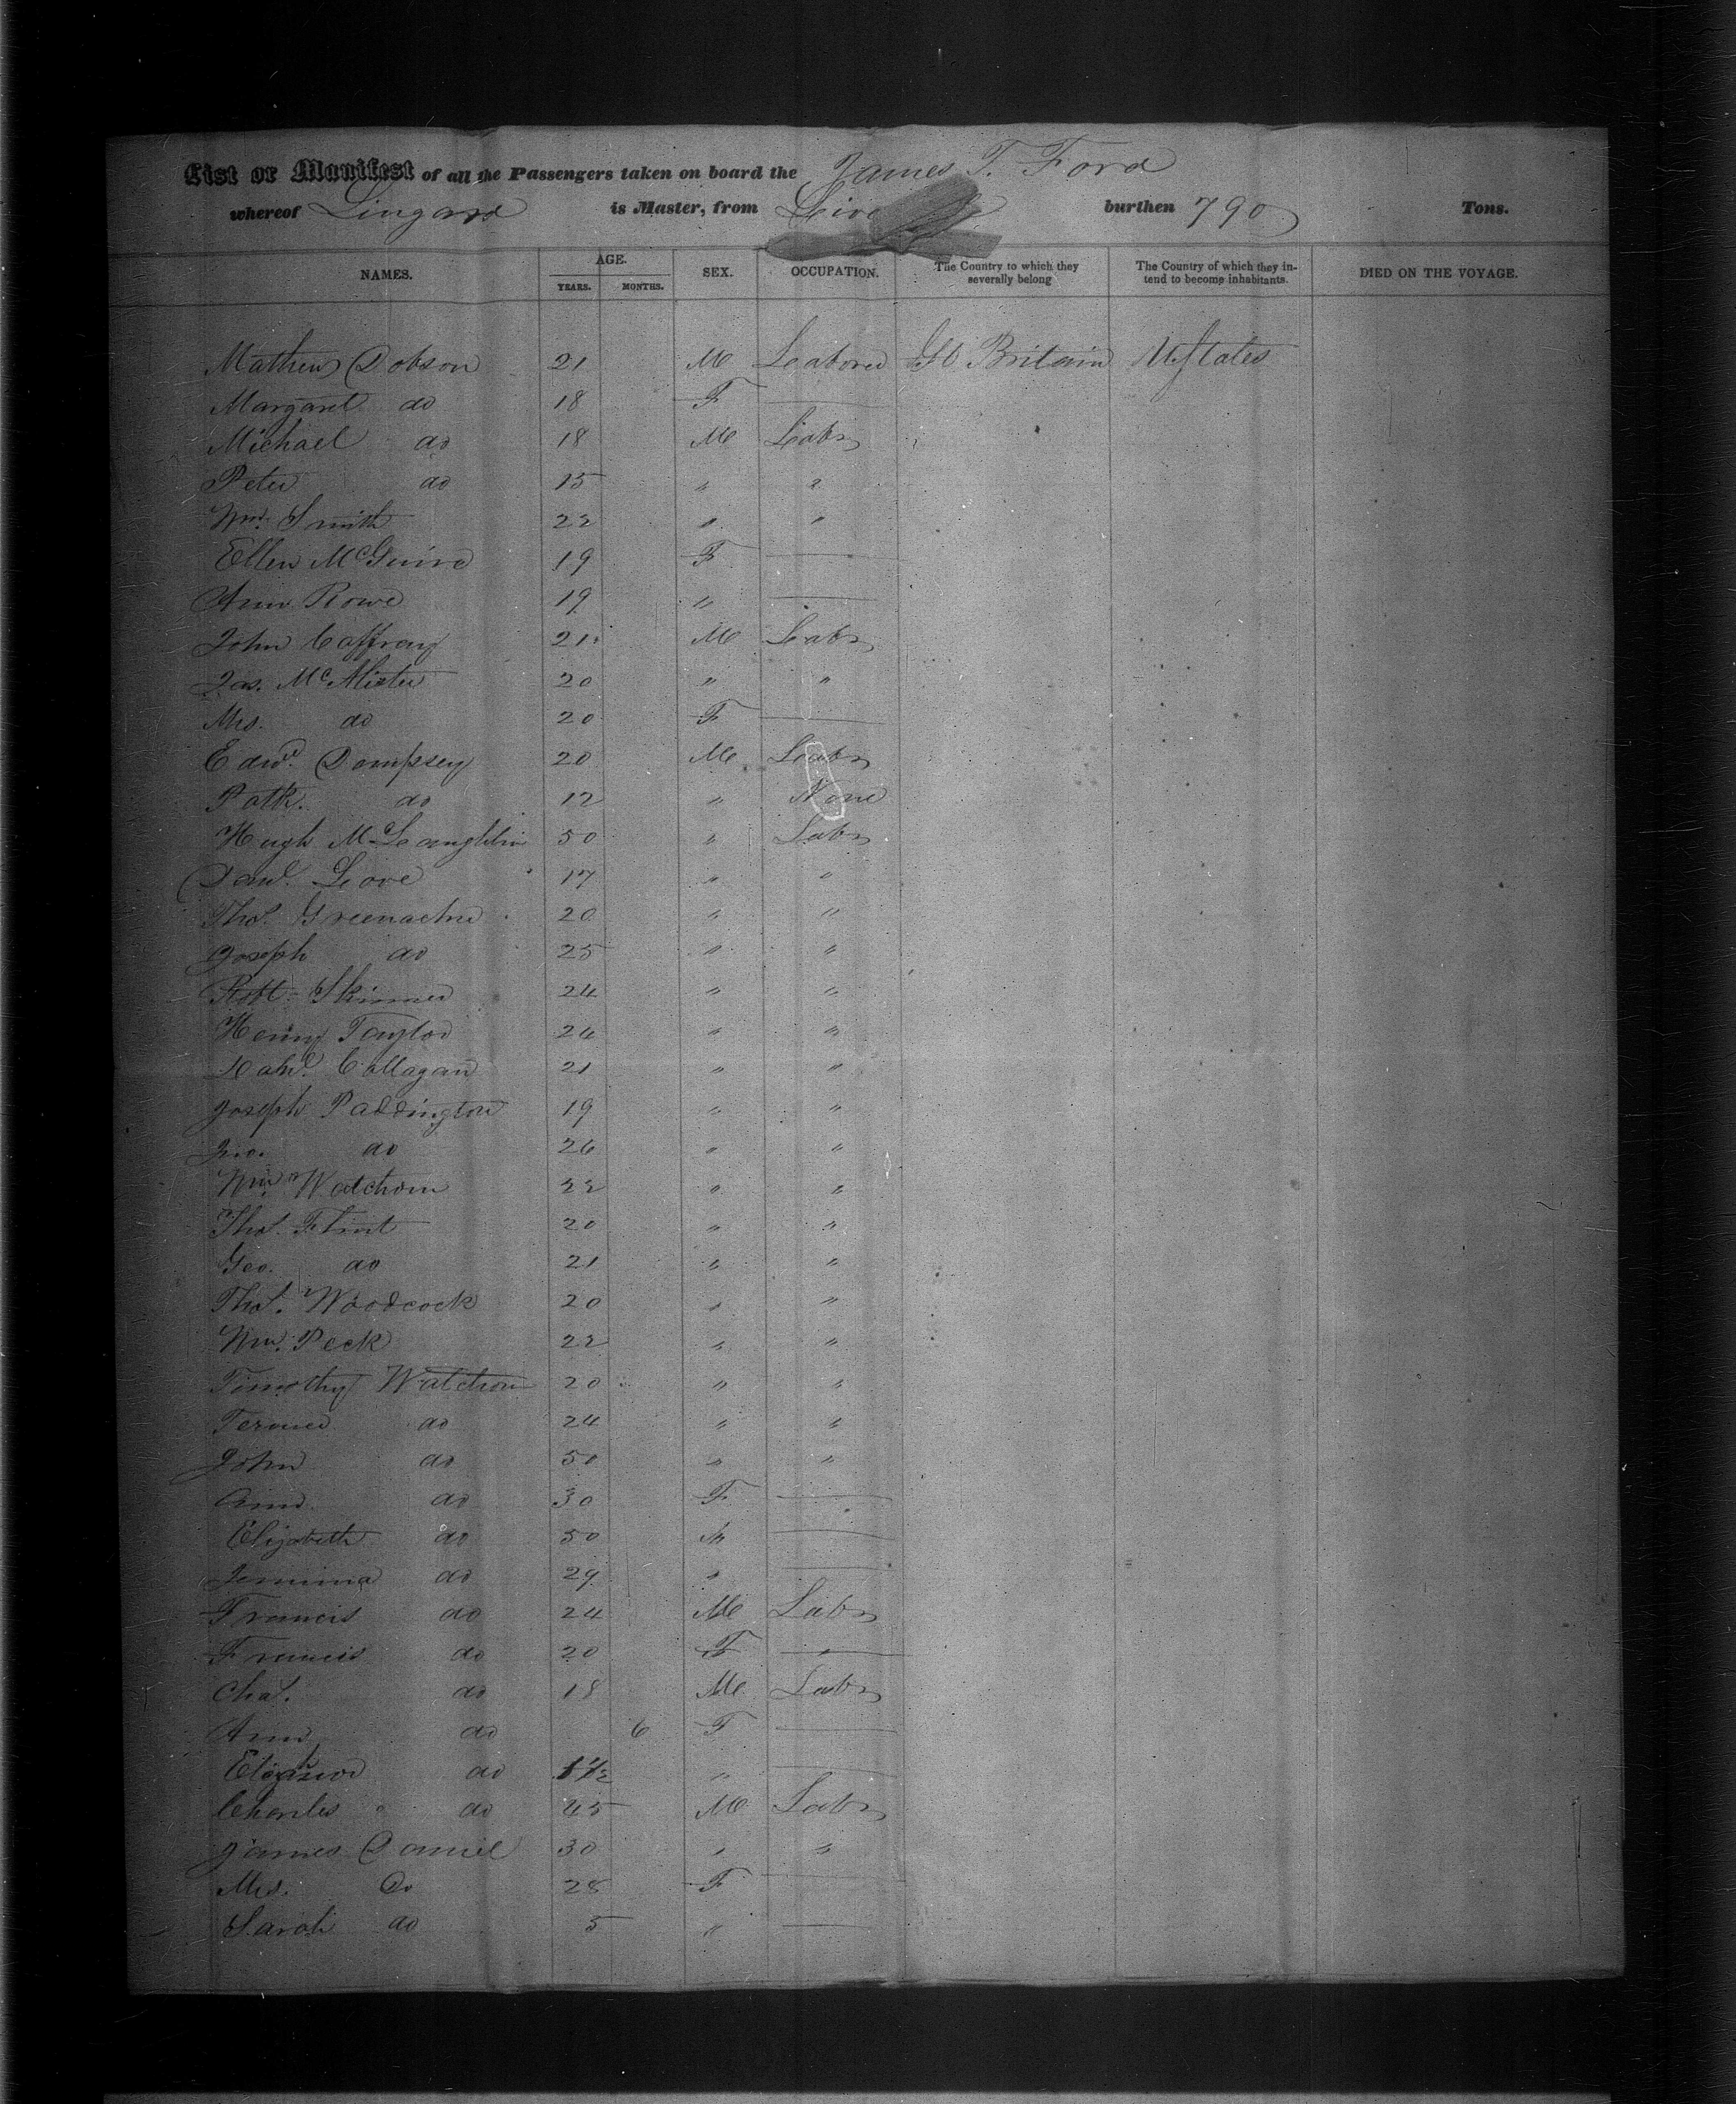 List or Manifest of all the Passengers taken on board the James T. Ford
whereof Lingard is Master, from burthen 790 Tons.
NAMES. AGE. YEARS. MONTHS. SEX. OCCUPATION. The Country to which they severally belong The Country of which they intend to become inhabitants. DIED ON THE VOYAGE.
Mathew Dobson 21 M Labourer Gt Britain U States
Margaret do 18 F —
Michael do 18 M Labr
Peter do 15 " "
Wm. Smith 22 " "
Ellen McGuire 19 F —
Ann Rowe 19 " —
John Caffray 21 M Labr
Jas. McAlister 20 " "
Mrs. do 20 F —
Edwd. Dempsey 20 M Labr
Patk. do 12 " None
Hugh McLaughlin 50 " Labr
Danl. Love 17 " "
Thos. Greenacher 20 " "
Joseph do 25 " "
Robt. Skinner 24 " "
Henry Taylor 24 " "
Callagan 21 " "
Joseph Paddington 19 " "
Jno. do 26 " "
Wm. Watchorn 22 " "
Thos. Flint 20 " "
Geo. do 21 " "
Thos. Woodcock 20 " "
Wm. Peck 22 " "
Timothy Watchorn 20 " "
do 24 " "
John do 50 " "
Ann do 30 F —
Elizabeth do 50 " —
Jemima do 29 " —
Francis do 24 M Labr
Francis do 20 F —
Chas. do 18 M Labr
Ann do 6 F —
do 1 1/2 " —
Charles do 45 M Labr
James Daniel 30 " "
Mrs. Do 28 F —
Sarah do 5 " —